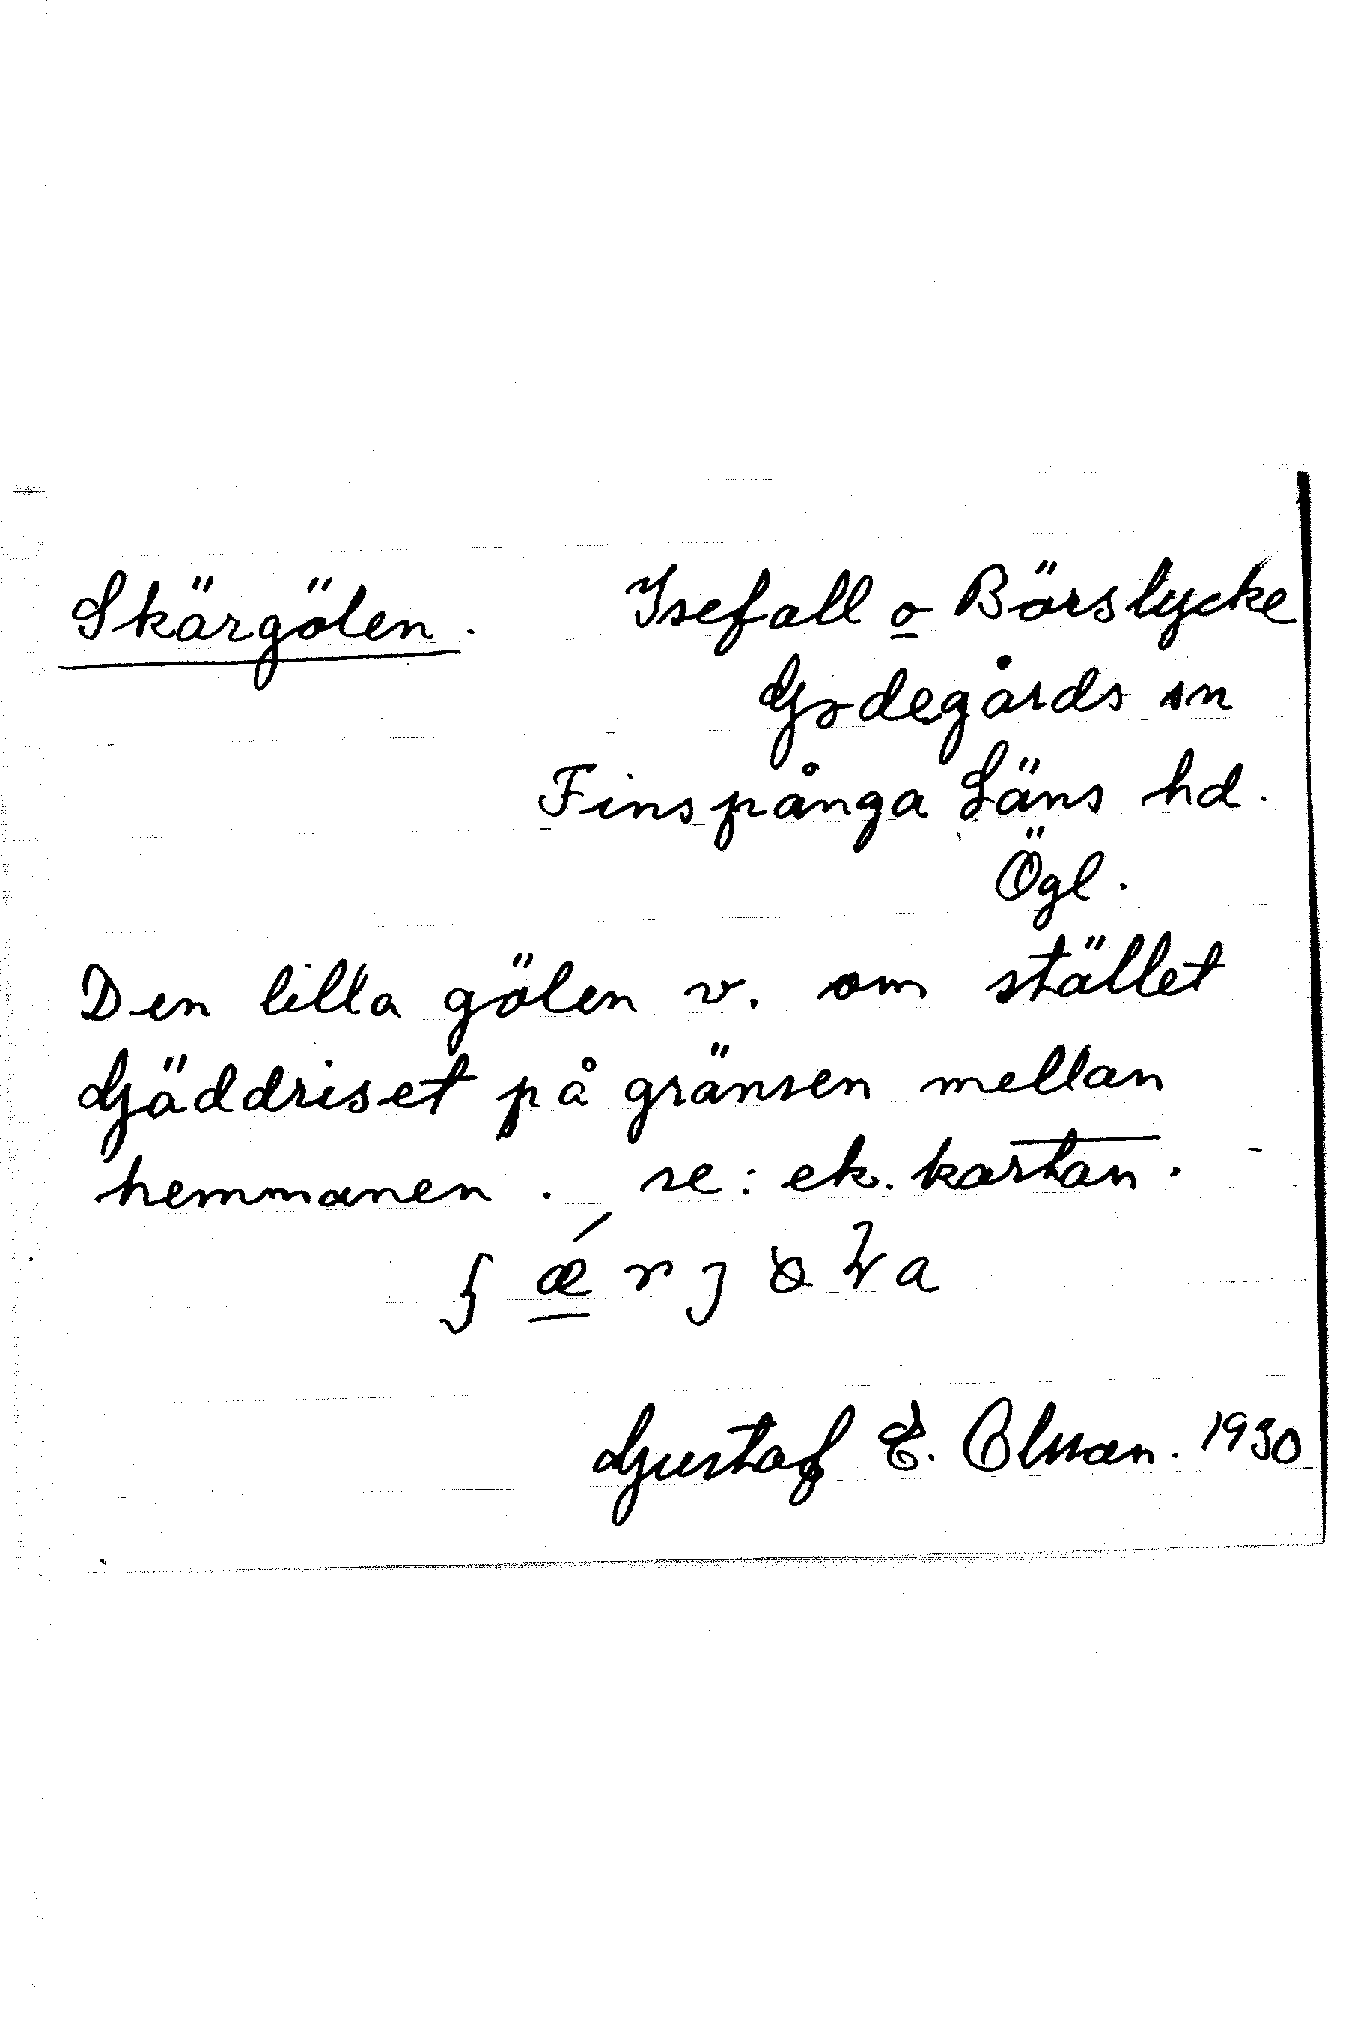 Skärgölen. Isefall o Börslycke
Godegårds sn
Finspånga Läns hd.
Ögl.
Den lilla gölen v. om stället
Gäddriset på gränsen mellan
hemmanen. se: ek. kartan.
Gustaf E. Olsson. 1930